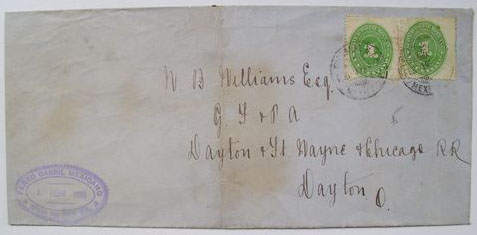 W B Williams Esq.
G F & P A
Dayton & Ft Wayne & Chicago RR
Dayton O.
MEX
MEXICANO